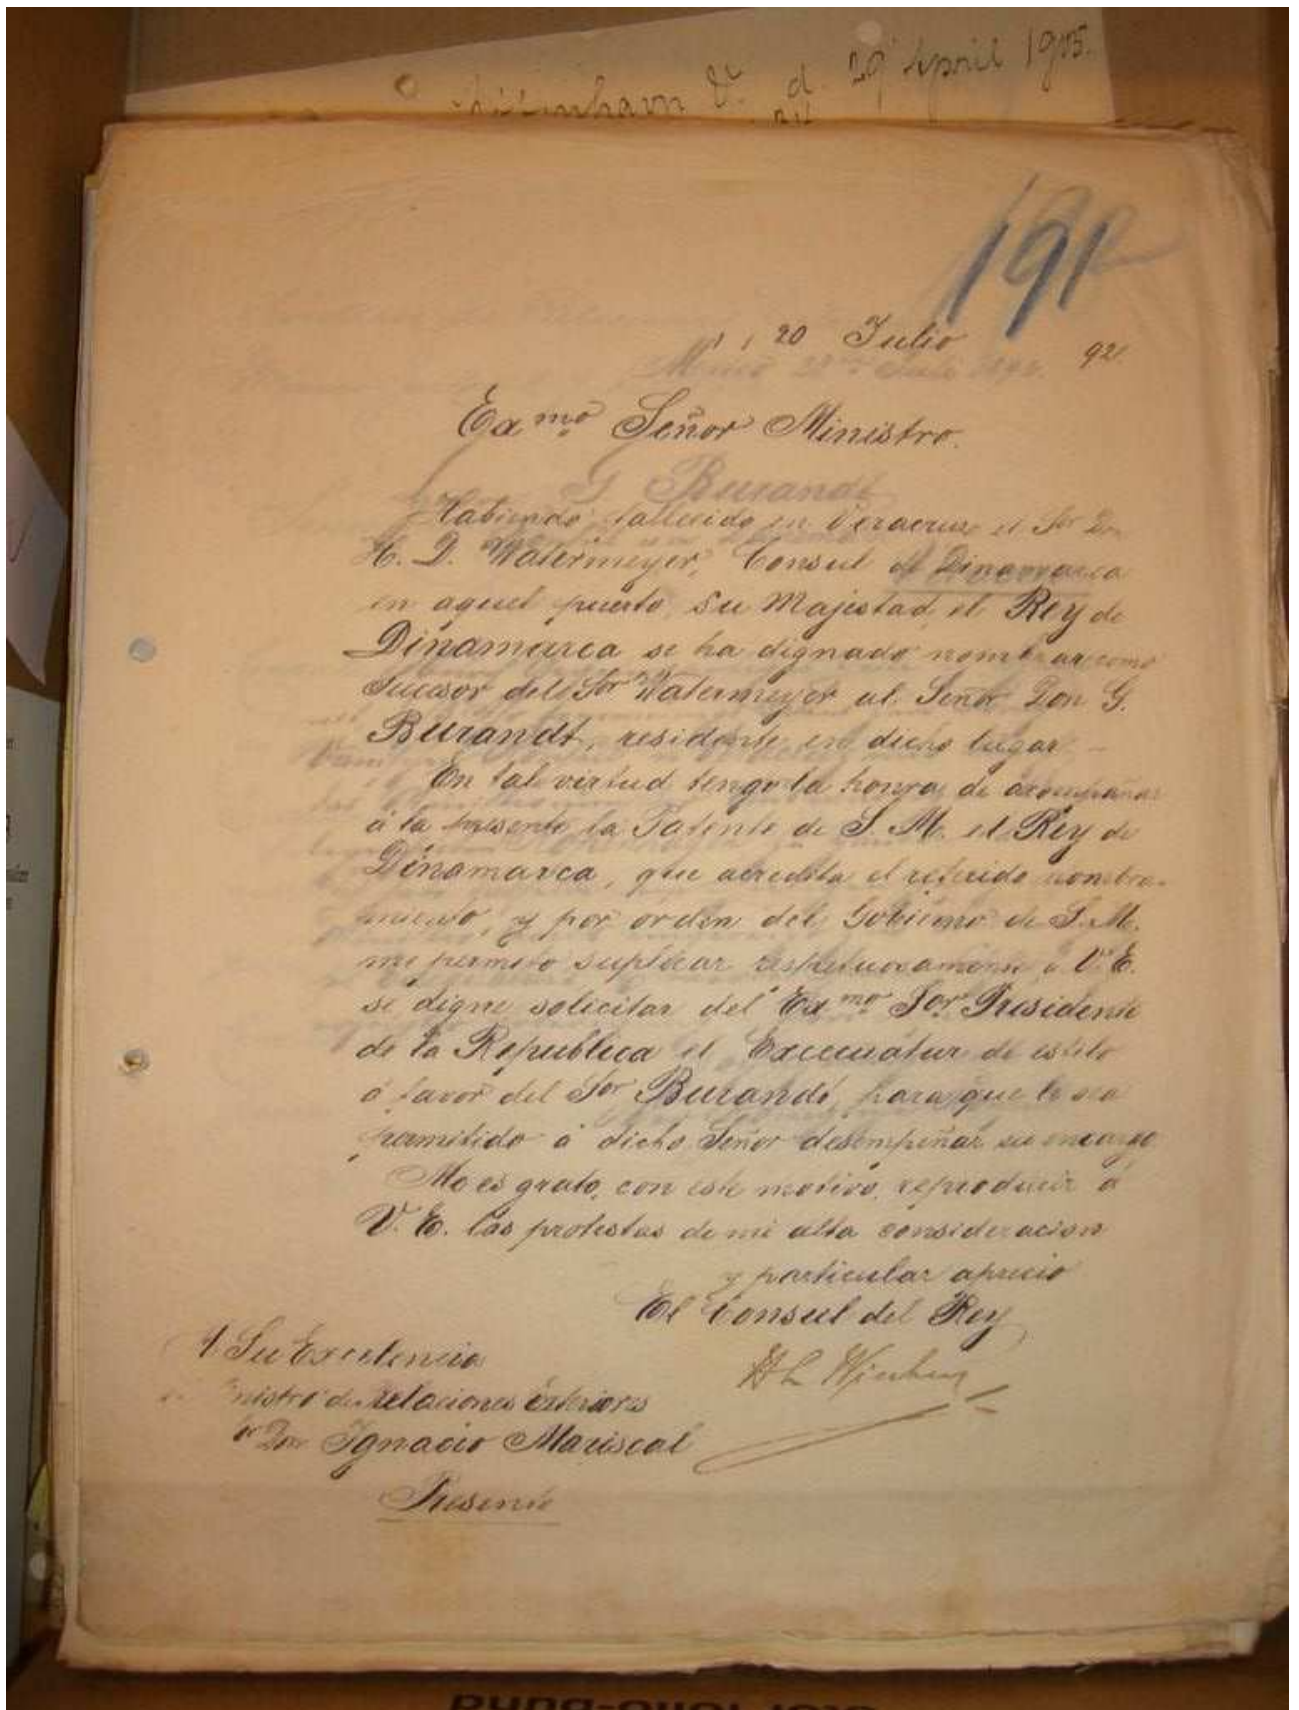 29 April 1905.
191
20 Julio 92.
Exmo Señor Ministro.
G. Burandt
Habiendo fallecido en Veracruz el Sor Don
H. D. Watermeyer, Consul de Dinamarca
en aquel puerto, Su Majestad el Rey de
Dinamarca se ha dignado nombrar como
sucesor del Sor Watermeyer al Señor Don G.
Burandt, residente en dicho lugar.
En tal virtud tengo la honra de acompañar
á la presente la Patente de S. M. el Rey de
Dinamarca, que acredita el referido nombra-
miento, y por orden del Gobierno de S. M.
me permito suplicar respetuosamente á V. E.
se digne solicitar del Exmo Sor Presidente
de la Republica el Exequatur de estilo
á favor del Sor Burandt, para que le sea
permitido á dicho Señor desempeñar su encargo.
Me es grato, con este motivo, reproducir á
V. E. las protestas de mi alta consideracion
y particular aprecio
El Consul del Rey
A Su Excelencia
nistro de relaciones exteriores
or Don Ignacio Mariscal
Presente